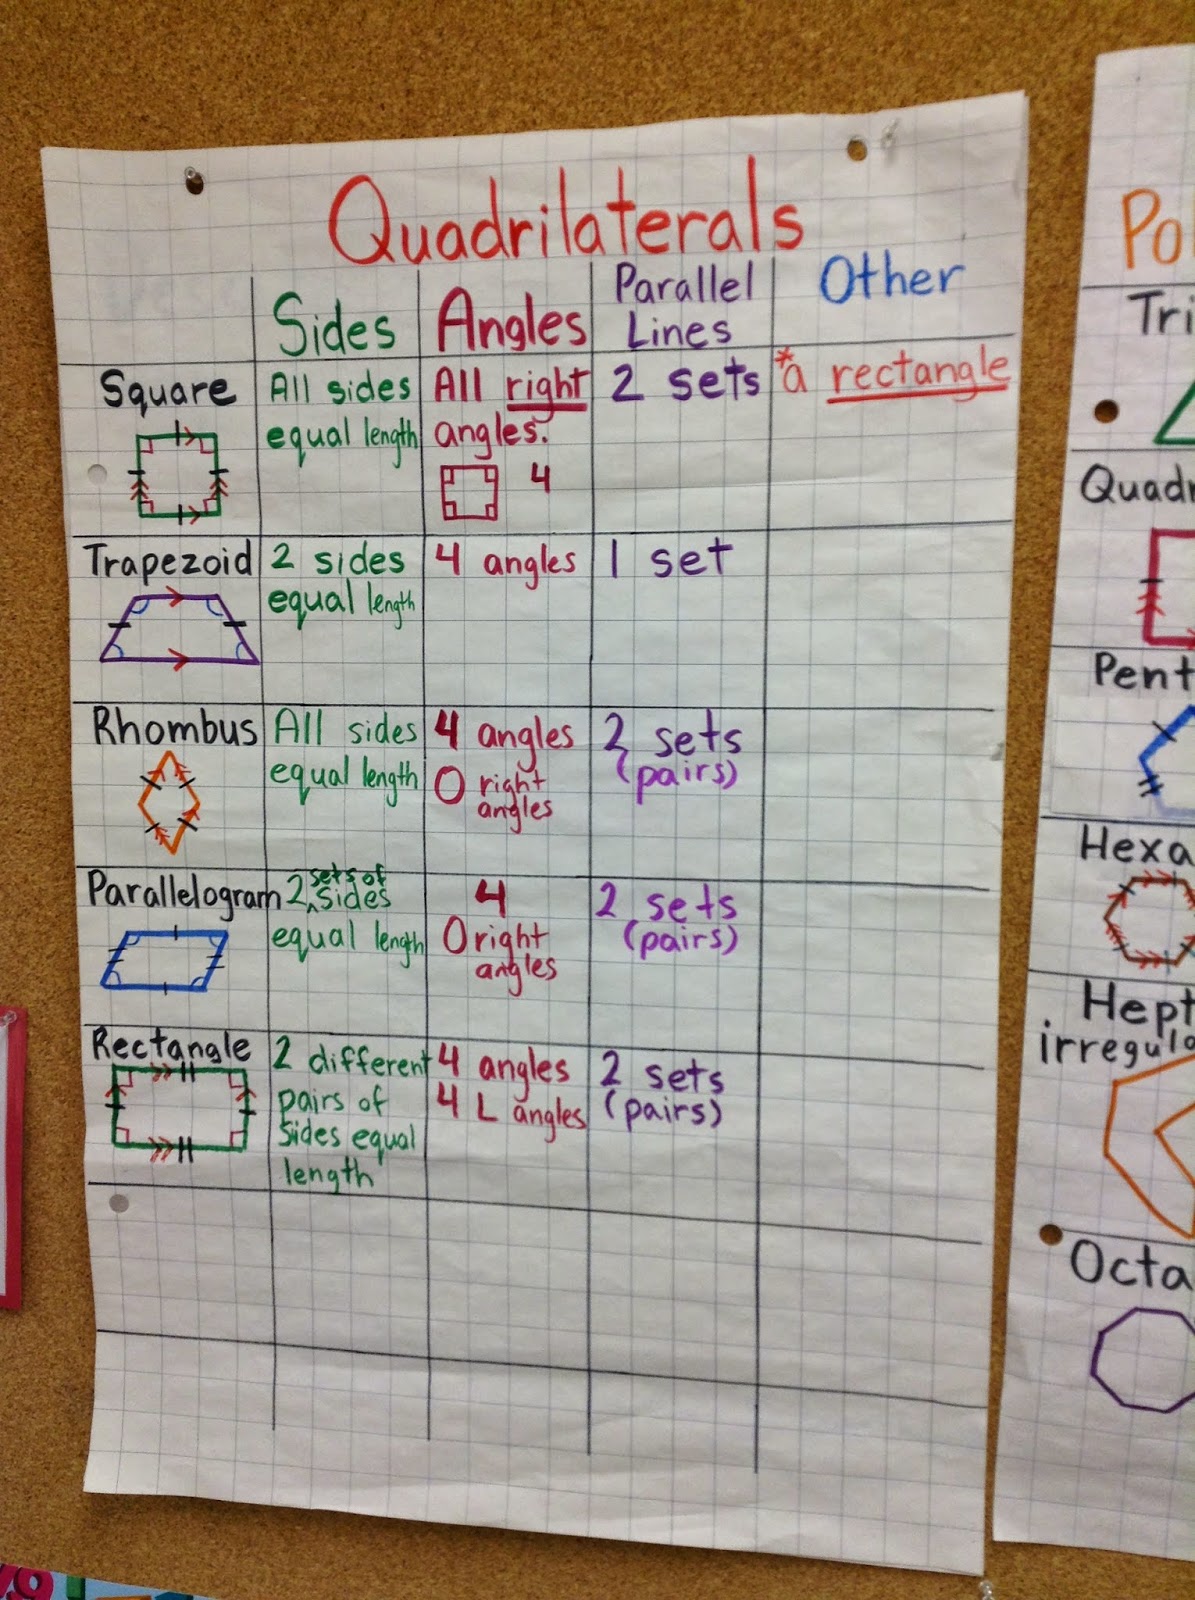 Quadrilaterals
Sides
Angles
Parallel
Lines
Other
Square
All sides
equal length
All right
angles.
4
2 sets
*a rectangle
Trapezoid
2 sides
equal length
4 angles
1 set
Rhombus
All sides
equal length
4 angles
0 right
angles
2 sets
(pairs)
Parallelogram
2 sets of sides
equal length
4
0 right
angles
2 sets
(pairs)
Rectangle
2 different
pairs of
sides equal
length
4 angles
4 L angles
2 sets
(pairs)
Po
Tri
Quadr
Pent
Hexa
Hept
irregula
Octa